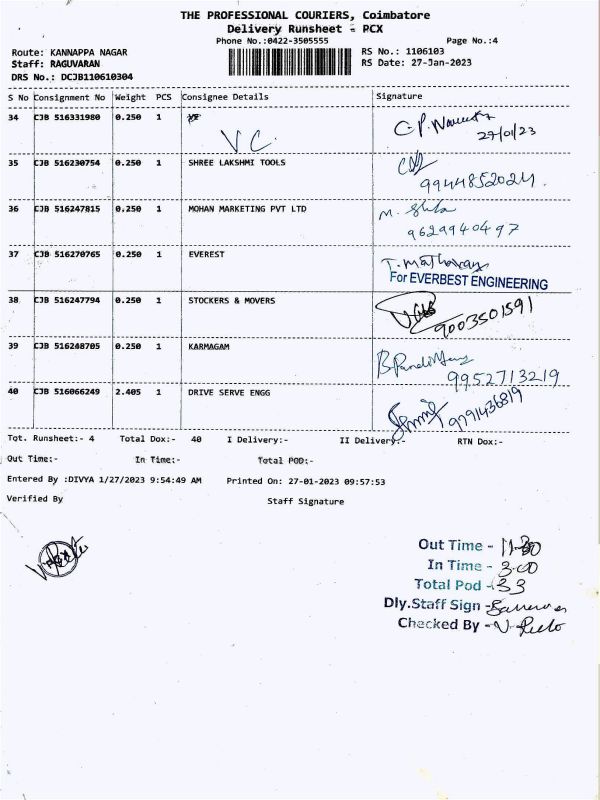 THE PROFESSIONAL COURIERS, Coimbatore
Delivery Runsheet - PCX
Phone No.:0422-3505555 Page No.:4
Route: KANNAPPA NAGAR RS No.: 1106103
Staff: RAGUVARAN RS Date: 27-Jan-2023
DRS No.: DCJB110610304
S No Consignment No Weight PCS Consignee Details Signature
34 CJB 516331980 0.250 1
V C. C.P. 27/01/23
35 CJB 516230754 0.250 1 SHREE LAKSHMI TOOLS
9944852024
36 CJB 516247815 0.250 1 MOHAN MARKETING PVT LTD M.
9629940497
37 CJB 516270765 0.250 1 EVEREST T.
For EVERBEST ENGINEERING
38 CJB 516247794 0.250 1 STOCKERS & MOVERS
9003501591
39 CJB 516248705 0.250 1 KARMAGAM
9952713219
40 CJB 516066249 2.405 1 DRIVE SERVE ENGG
9791436819
Tot. Runsheet:- 4 Total Dox:- 40 I Delivery:- II Delivery:- RTN Dox:-
Out Time:- In Time:- Total POD:-
Entered By :DIVYA 1/27/2023 9:54:49 AM Printed On: 27-01-2023 09:57:53
Verified By Staff Signature
Out Time - 11.30
In Time - 3.00
Total Pod - 33
Dly.Staff Sign -
Checked By -